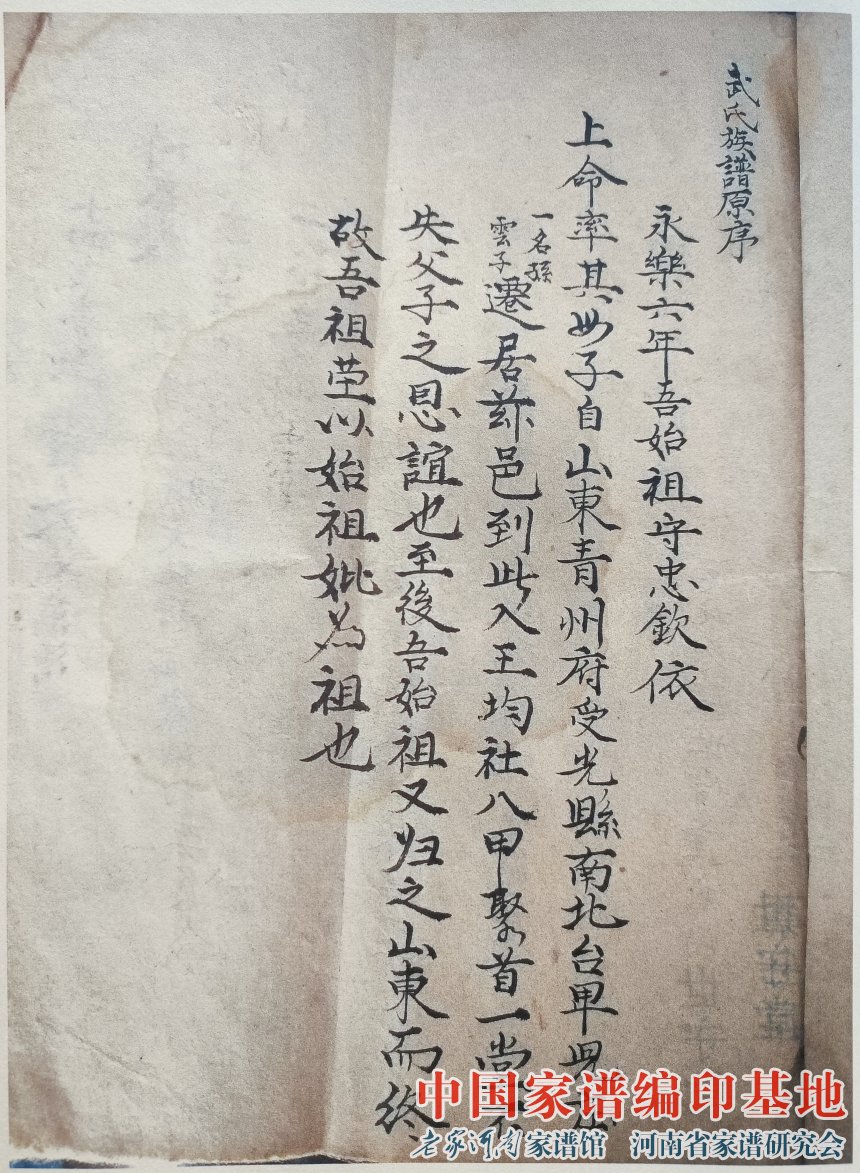 武氏族譜原序
永樂六年吾始祖守忠欽依
上命率其母子自山東青州府受光縣南北台里
一名孫
雲子
遷居茲邑到此入王均社八甲聚首一堂不
失父子之恩誼也至後吾始祖又归之山東而終
故吾祖茔以始祖妣為祖也
中国家谱编印基地
老家河南家谱馆 河南省家谱研究会